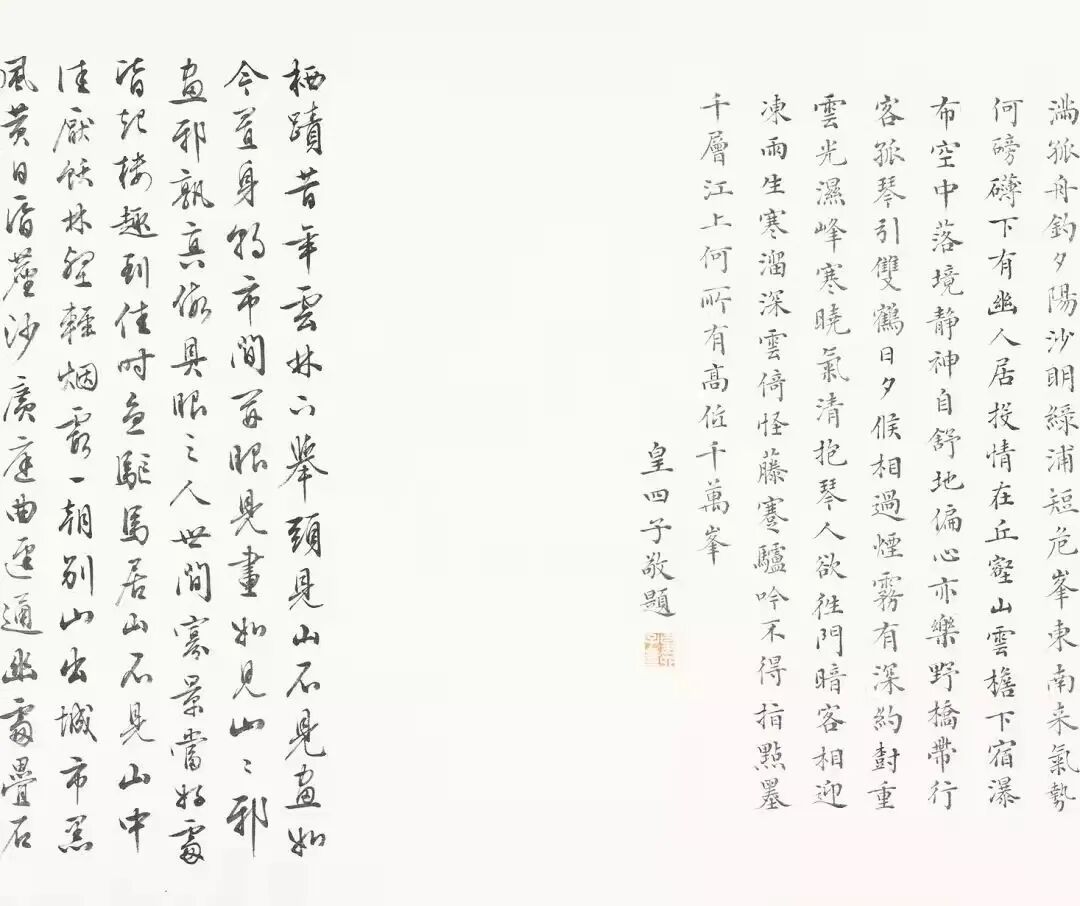 滿孤舟釣夕陽沙明綠浦短危峯東南来氣勢
何磅礴下有幽人居投情在丘壑山雲檐下宿瀑
布空中落境靜神自舒地偏心亦樂野橋帶行
客孤琴引雙鶴日夕候相過煙霧有深約對重
雲光濕峰寒曉氣清抱琴人欲往門暗客相迎
凍雨生寒溜深雲倚怪藤蹇驢吟不得指點墨
千層江上何所有高低千萬峯
皇四子敬題
栖蹟昔年雲林下舉頭見山不見畫如
今置身朝市間茅眼見畫如見山山邪
畫邪孰真假具眼之人世間寡景當好處
皆起樓趣到佳時急駐馬居山不見山中
佳厭飫林壑輕烟霞一朝別山出城市黑
風黄日滔塵沙廣庭曲逕通幽處疊石